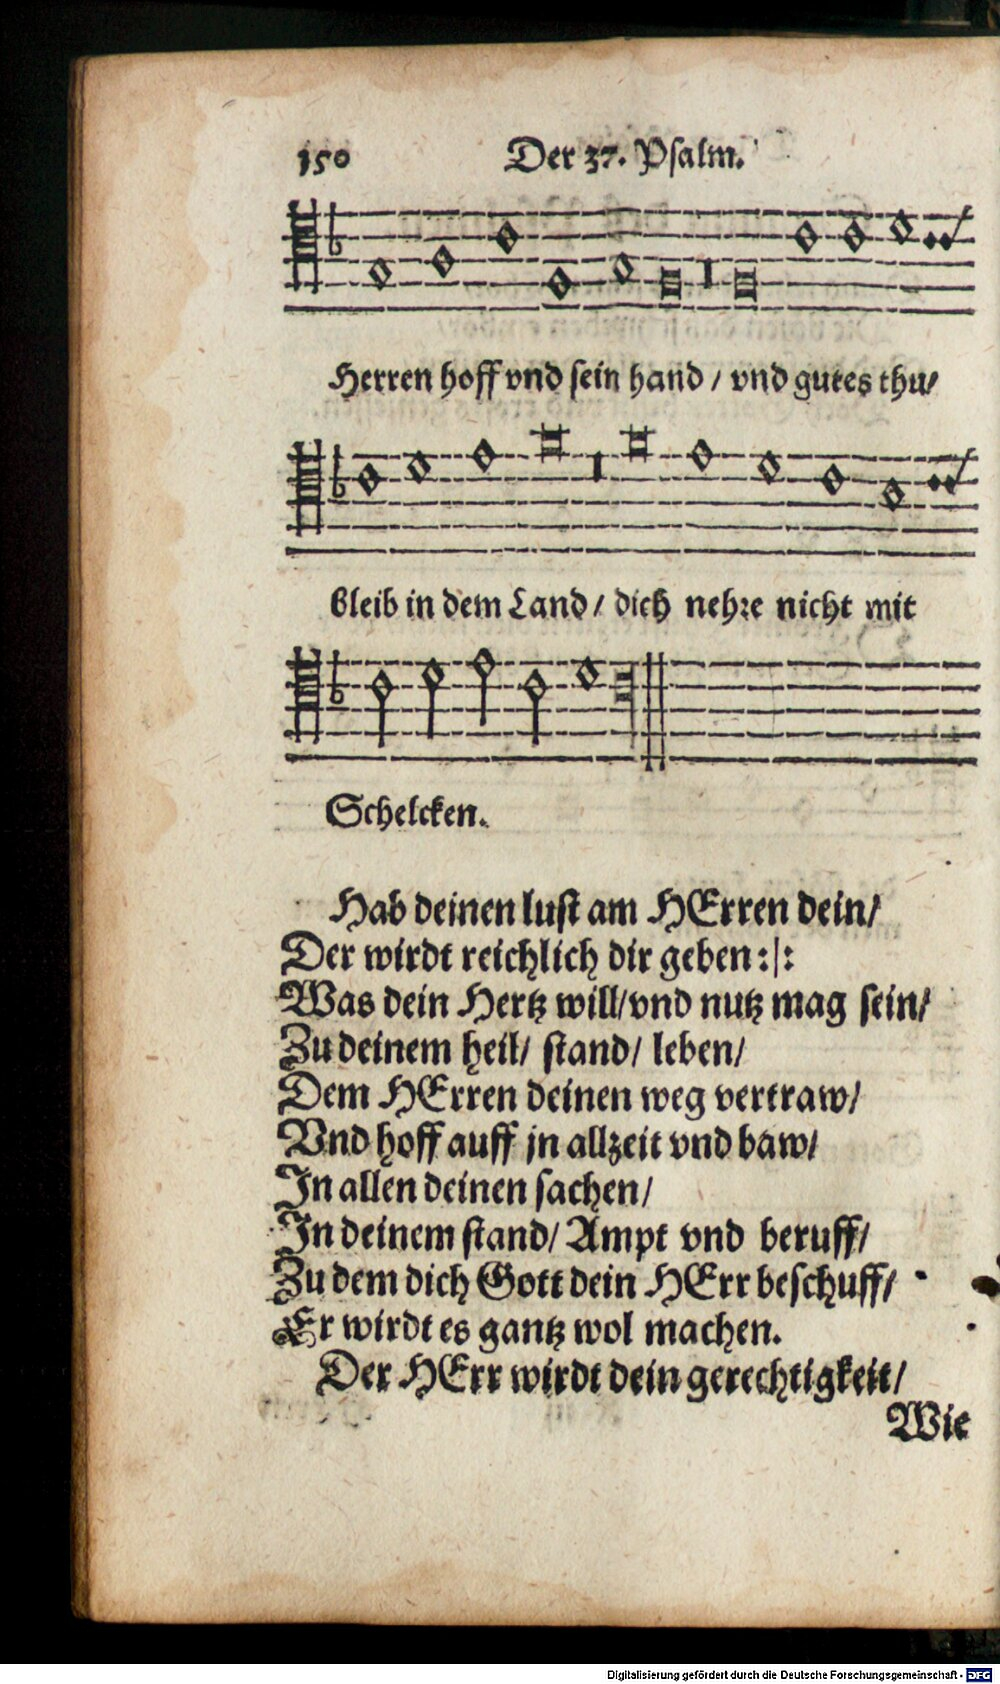 150 Der 37. Psalm.
Herren hoff vnd sein hand / vnd gutes thu/
bleib in dem Land / dich nehre nicht mit
Schelcken.
Hab deinen lust am HErren dein/
Der wirdt reichlich dir geben :|:
Was dein Hertz will/vnd nutz mag sein/
Zu deinem heil/ stand/ leben/
Dem HErren deinen weg vertraw/
Vnd hoff auff jn allzeit vnd baw/
In allen deinen sachen/
In deinem stand/ Ampt vnd beruff/
Zu dem dich Gott dein HErr beschuff/
Er wirdt es gantz wol machen.
Der HErr wirdt dein gerechtigkeit/
Wie
Digitalisierung gefördert durch die Deutsche Forschungsgemeinschaft - DFG